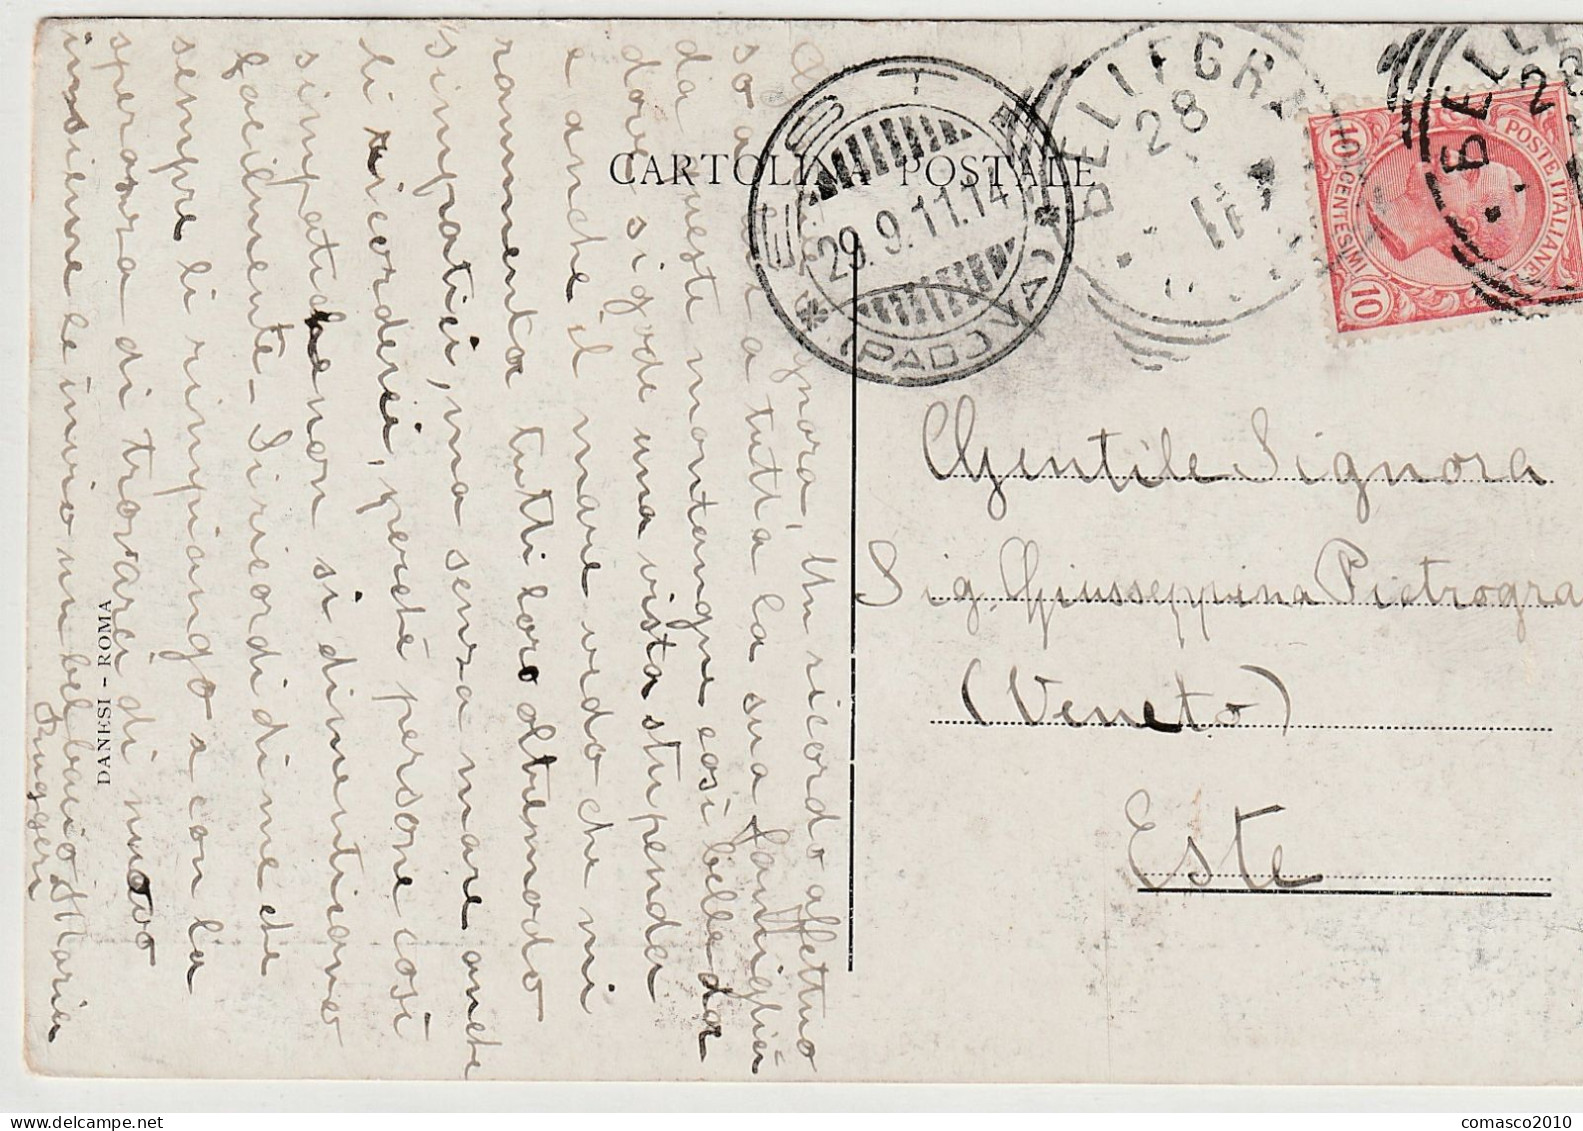 CARTOLINA POSTALE
ESTE
29.9.11.14
* (PADOVA) *
BELLEGRA
28
11
BELLE
28
POSTE ITALIANE
10 CENTESIMI 10
Gentile Signora
Sig. Giuseppina Pietrogra
(Veneto)
Este
DANESI - ROMA
Signora, Un ricordo affettuo
so a lei e a tutta la sua famiglia
da queste montagne così belle da
dove si gode una vista stupenda
e anche il mare vedo che mi
rammenta tutti loro oltremodo
simpatici, ma senza mare anche
li ricorderei, perchè persone così
simpatiche non si dimenticano
facilmente. Si ricordi di me che
sempre li rimpiango e con la
speranza di trovarci di nuovo
insieme le invio un bel bacio Maria
Ruggeri